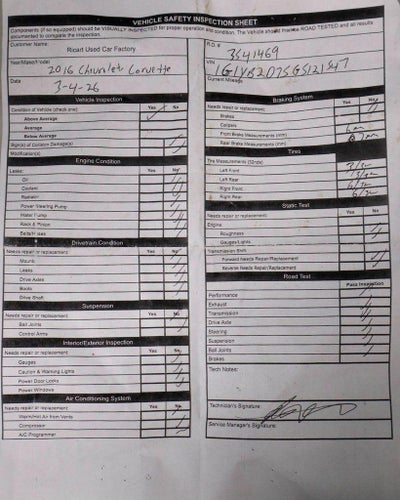 VEHICLE SAFETY INSPECTION SHEET
Components (if so equipped) should be VISUALLY INSPECTED for proper operation and condition. The Vehicle should then be ROAD TESTED and all results
documented to complete the inspection.
Customer Name:
Ricart Used Car Factory
Year/Make/Model
2016 Chevrolet Corvette
Date
3-4-26
Vehicle Inspection
Condition of Vehicle (check one) Yes No
Above Average
Average
Below Average
Sign(s) of Collision Damage(s)
Modification(s)
Engine Condition
Leaks: Yes No
Oil
Coolant
Radiator
Power Steering Pump
Water Pump
Rack & Pinion
Belts/Hoses
Drivetrain Condition
Needs repair or replacement: Yes No
Mounts
Leaks
Drive Axles
Boots
Drive Shaft
Suspension
Needs repair or replacement: Yes No
Ball Joints
Control Arms
Interior/Exterior Inspection
Needs repair or replacement: Yes No
Gauges
Caution & Warning Lights
Power Door Locks
Power Windows
Air Conditioning System
Needs repair or replacement: Yes No
Warm/Hot Air from Vents
Compressor
A/C Programmer
R.O. #
3541469
VIN
Current Mileage
Braking System
Needs repair or replacement: Yes No
Brakes
Calipers
Front Brake Measurements (mm)
Rear Brake Measurements (mm)
Tires
Tire Measurements (32nds)
Left Front
Left Rear
Right Front
Right Rear
Static Test
Needs repair or replacement: Yes No
Engine
Roughness
Gauges/Lights
Transmission Shift
Forward Needs Repair/Replacement
Reverse Needs Repair/Replacement
Road Test
Pass Inspection
Performance
Exhaust
Transmission
Drive Axle
Steering
Suspension
Ball Joints
Brakes
Tech Notes:
Technician's Signature:
Service Manager's Signature: